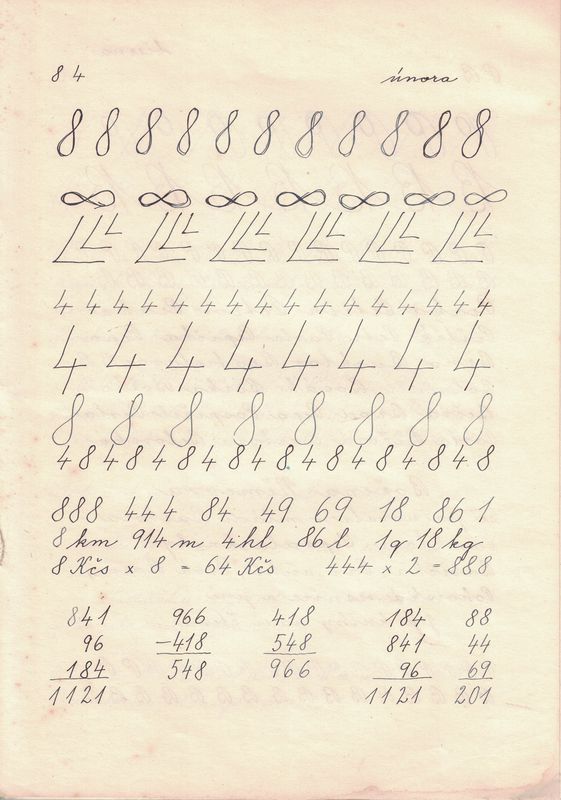 84 února
8 8 8 8 8 8 8 8 8 8 8
∞ ∞ ∞ ∞ ∞ ∞ ∞
4 4 4 4 4 4 4 4 4 4 4 4 4 4 4 4
4 4 4 4 4 4 4 4
8 8 8 8 8 8 8 8
4 8 4 8 4 8 4 8 4 8 4 8 4 8 4 8 4 8
888 444 84 49 69 18 861
8 km 914 m 4 hl 86 l 1 q 18 kg
8 Kčs x 8 = 64 Kčs 444 x 2 = 888
841 966 418 184 88
96 -418 548 841 44
184 548 966 96 69
1121 1121 201